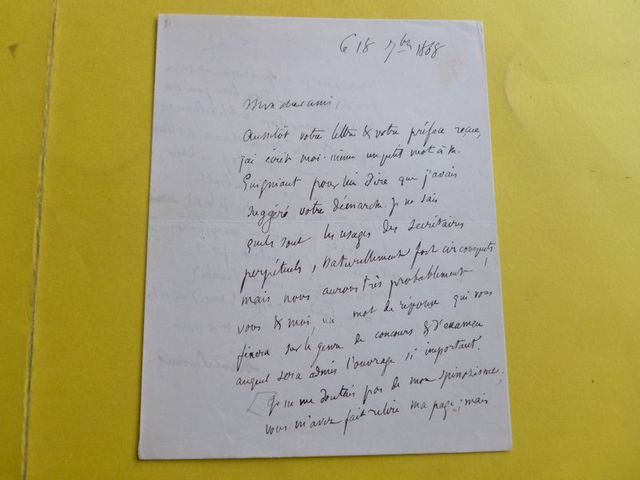 le 18 7bre 1868
Mon cher ami,
Aussitôt votre lettre & votre préface reçue,
j'ai écrit moi-même un petit mot à M.
Guigniaut pour lui dire que j'avais
suggéré votre démarche. Je ne sais
quels sont les usages des secrétaires
perpétuels, naturellement fort circonspects
mais nous aurons très probablement,
vous & moi, un mot de réponse qui vous
fixera sur le genre de concours & d'examen
auquel sera admis l'ouvrage si important.
Je ne me doutais pas de mon spinozisme.
vous m'avez fait relire ma page; mais